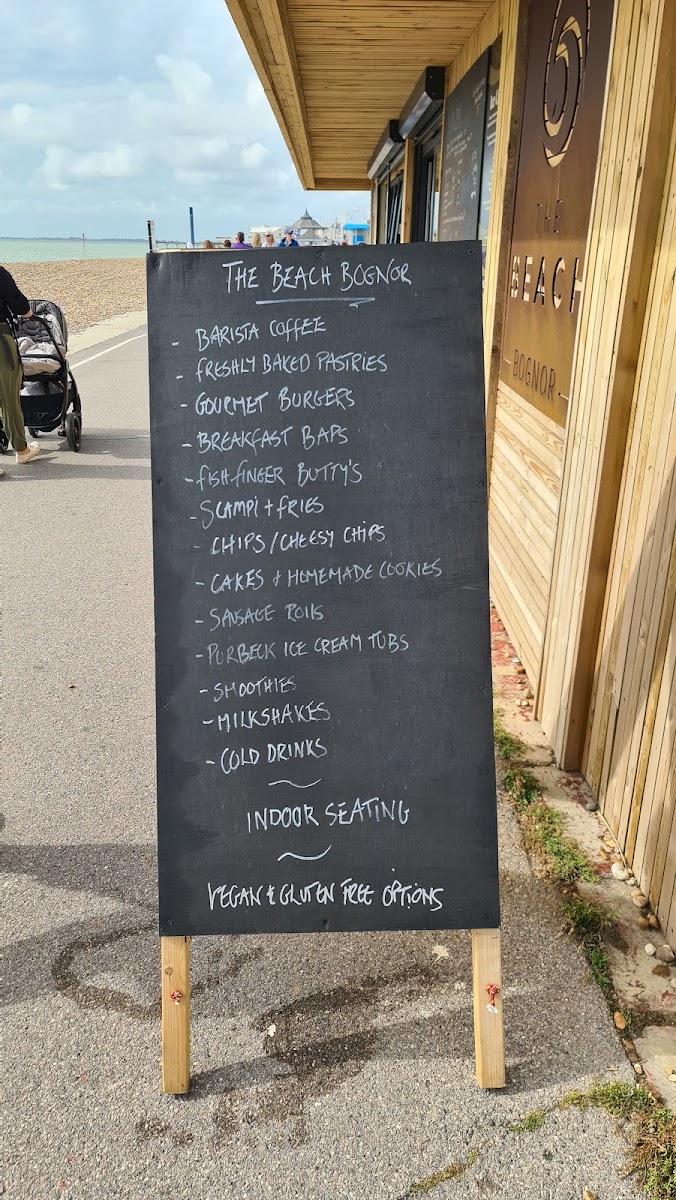 THE BEACH BOGNOR
- BARISTA COFFEE
- FRESHLY BAKED PASTRIES
- GOURMET BURGERS
- BREAKFAST BAPS
- FISH FINGER BUTTY'S
- SCAMPI + FRIES
- CHIPS/CHEESY CHIPS
- CAKES & HOMEMADE COOKIES
- SAUSAGE ROLLS
- PURBECK ICE CREAM TUBS
- SMOOTHIES
- MILKSHAKES
- COLD DRINKS
INDOOR SEATING
VEGAN & GLUTEN FREE OPTIONS
THE
BEACH
BOGNOR